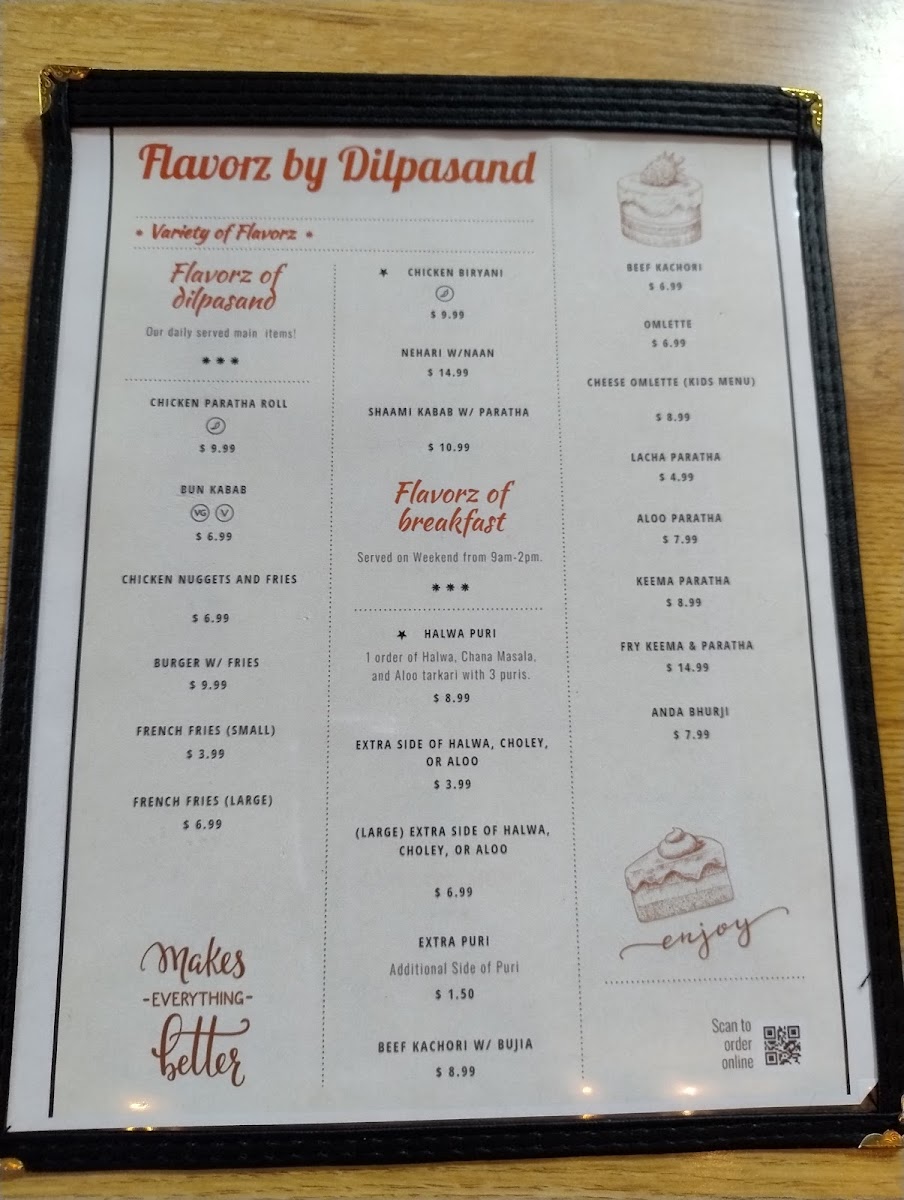 Flavorz by Dilpasand
• Variety of Flavorz •
Flavorz of
dilpasand
Our daily served main items!
CHICKEN PARATHA ROLL
$ 9.99
BUN KABAB
VG V
$ 6.99
CHICKEN NUGGETS AND FRIES
$ 6.99
BURGER W/ FRIES
$ 9.99
FRENCH FRIES (SMALL)
$ 3.99
FRENCH FRIES (LARGE)
$ 6.99
Makes
-EVERYTHING-
better
CHICKEN BIRYANI
$ 9.99
NEHARI W/NAAN
$ 14.99
SHAAMI KABAB W/ PARATHA
$ 10.99
Flavorz of
breakfast
Served on Weekend from 9am-2pm.
HALWA PURI
1 order of Halwa, Chana Masala,
and Aloo tarkari with 3 puris.
$ 8.99
EXTRA SIDE OF HALWA, CHOLEY,
OR ALOO
$ 3.99
(LARGE) EXTRA SIDE OF HALWA,
CHOLEY, OR ALOO
$ 6.99
EXTRA PURI
Additional Side of Puri
$ 1.50
BEEF KACHORI W/ BUJIA
$ 8.99
BEEF KACHORI
$ 6.99
OMLETTE
$ 6.99
CHEESE OMLETTE (KIDS MENU)
$ 8.99
LACHA PARATHA
$ 4.99
ALOO PARATHA
$ 7.99
KEEMA PARATHA
$ 8.99
FRY KEEMA & PARATHA
$ 14.99
ANDA BHURJI
$ 7.99
enjoy
Scan to
order
online